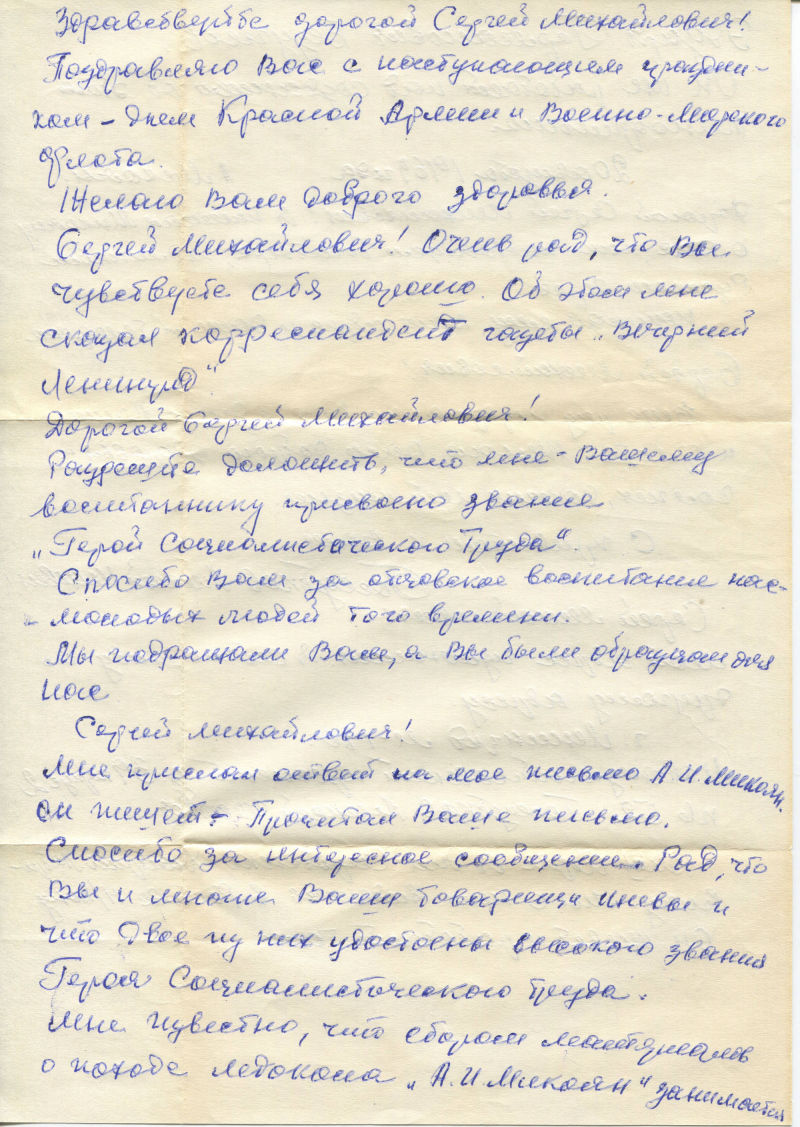 Здравствуйте дорогой Сергей Михайлович!
Поздравляю Вас с наступающим праздни-
ком – днем Красной Армии и Военно-Морского
Флота.
Желаю Вам доброго здоровья.
Сергей Михайлович! Очень рад, что Вы
чувствуете себя хорошо. Об этом мне
сказал корреспондент газеты „Вечерний
Ленинград“.
Дорогой Сергей Михайлович!
Разрешите доложить, что мне – Вашему
воспитаннику присвоено звание
„Герой Социалистического Труда“.
Спасибо Вам за отцовское воспитание нас –
– молодых людей того времени.
Мы подражали Вам, а Вы были образцом для
нас
Сергей Михайлович!
Мне прислал ответ на мое письмо А.И. Микоян.
он пишет – Прочитал Ваше письмо.
Спасибо за интересное сообщение. Рад, что
Вы и многие Ваши товарищи живы и
что двое из них удостоены высокого звания
Героя Социалистического Труда.
Мне известно, что сбором материалов
о походе ледокола „А.И. Микоян“ занимается